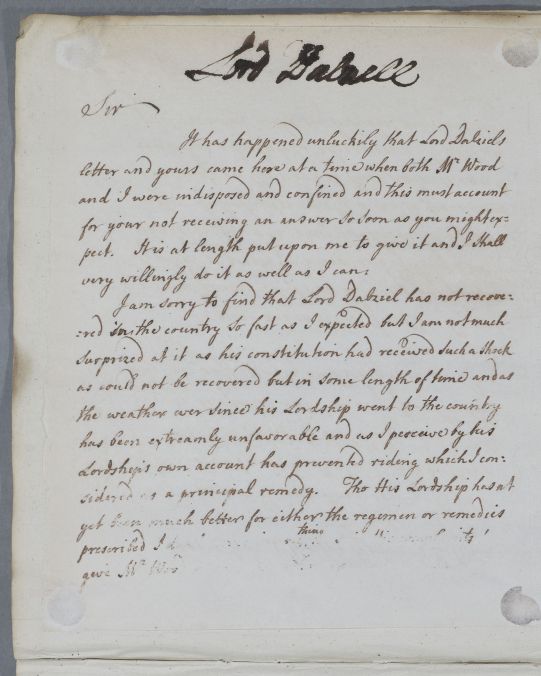 Lord Dalzell
Sir
It has happened unluckily that Lord Dalziels
letter and yours came here at a time when both Mr Wood
and I were indisposed and confined and this must account
for your not receiving an answer so soon as you might ex=
pect. It is at length put upon me to give it and I shall
very willingly do it as well as I can:
I am sorry to find that Lord Dalziel has not recove=
=red in the country so fast as I expected but I am not much
surprized at it as his constitution had received such a shock
as could not be recovered but in some length of time and as
the weather ever since his Lordship went to the country
has been extreamly unfavorable and as I perceive by his
Lordship's own account has prevented riding which I con=
sidered as a principal remedy. Tho His Lordship has not
yet been much better for either the regimen or remedies
prescribed I thing
give Mr Wood